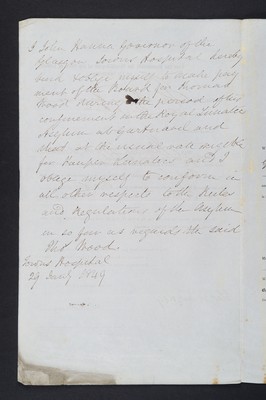 I John Hanna Governor of the
Glasgow Towns Hospital hereby
bind & oblige myself to make pay
ment of the Board for Thomas
Wood during the period of his
confinement in the Royal Lunatic
Asylum at Gartnavel and
that at the usual rate
for Pauper Lunatics and I
oblige myself to conform in
all other respects to the Rules
and Regulations of the Asylum
in so far as regards the said
Thos Wood.
Towns Hospital
29 1849